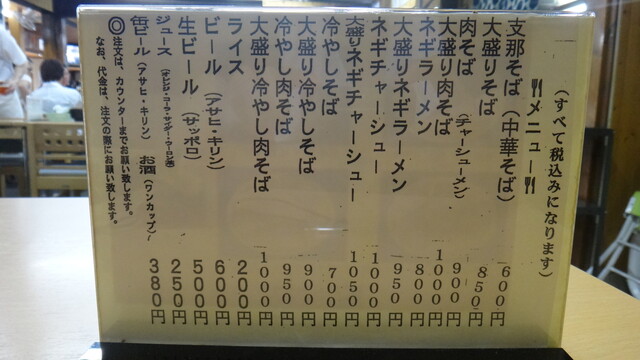 (すべて税込みになります)
メニュー
支那そば(中華そば) 600円
大盛りそば 850円
肉そば(チャーシューメン) 900円
大盛り肉そば 1000円
ネギラーメン 800円
大盛りネギラーメン 950円
ネギチャーシュー 1000円
大盛りネギチャーシュー 1050円
冷やしそば 700円
大盛り冷やしそば 900円
冷やし肉そば 950円
大盛り冷やし肉そば 1000円
ライス 200円
ビール(アサヒ・キリン) 600円
生ビール(サッポロ) 500円
ジュース(オレンジ・コーラ・サイダー・ウーロン茶) 250円
缶ビール(アサヒ・キリン) お酒(ワンカップ) 380円
◎注文は、カウンターまでお願い致します。
なお、代金は、注文の際にお願い致します。